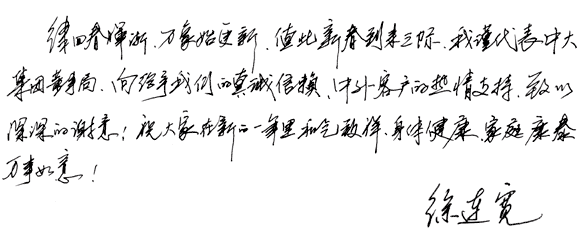 律回春晖渐,万象始更新,值此新春到来之际,我谨代表中大
集团董事局,向给予我们的真诚信赖、中外客户的热情支持,致以
深深的谢意!祝大家在新的一年里和气致祥,身体健康,家庭康泰
万事如意!
徐连宽